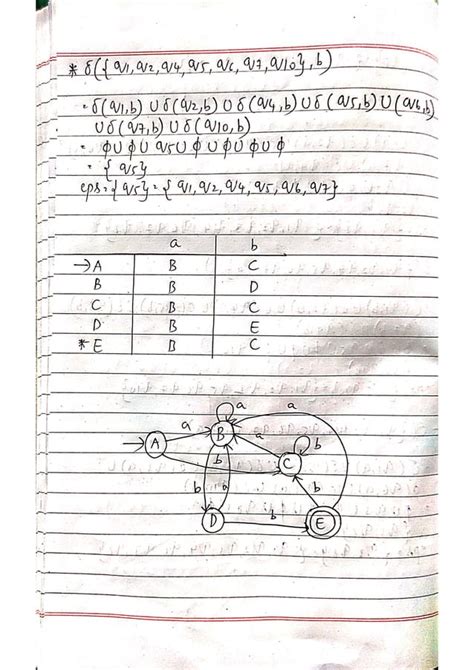 * δ({q1,q2,q4,q5,q6,q7,q10},b)
= δ(q1,b) ∪ δ(q2,b) ∪ δ(q4,b) ∪ δ(q5,b) ∪ (q6,b)
∪ δ(q7,b) ∪ δ(q10,b)
= ϕ ∪ ϕ ∪ q5 ∪ ϕ ∪ ϕ ∪ ϕ ∪ ϕ
= {q5}
eps = {q5} = {q1, q2, q4, q5, q6, q7}
a b
→A B C
B B D
C B C
D B E
*E B C
a
a
A a B a C b
b b
b
D b E